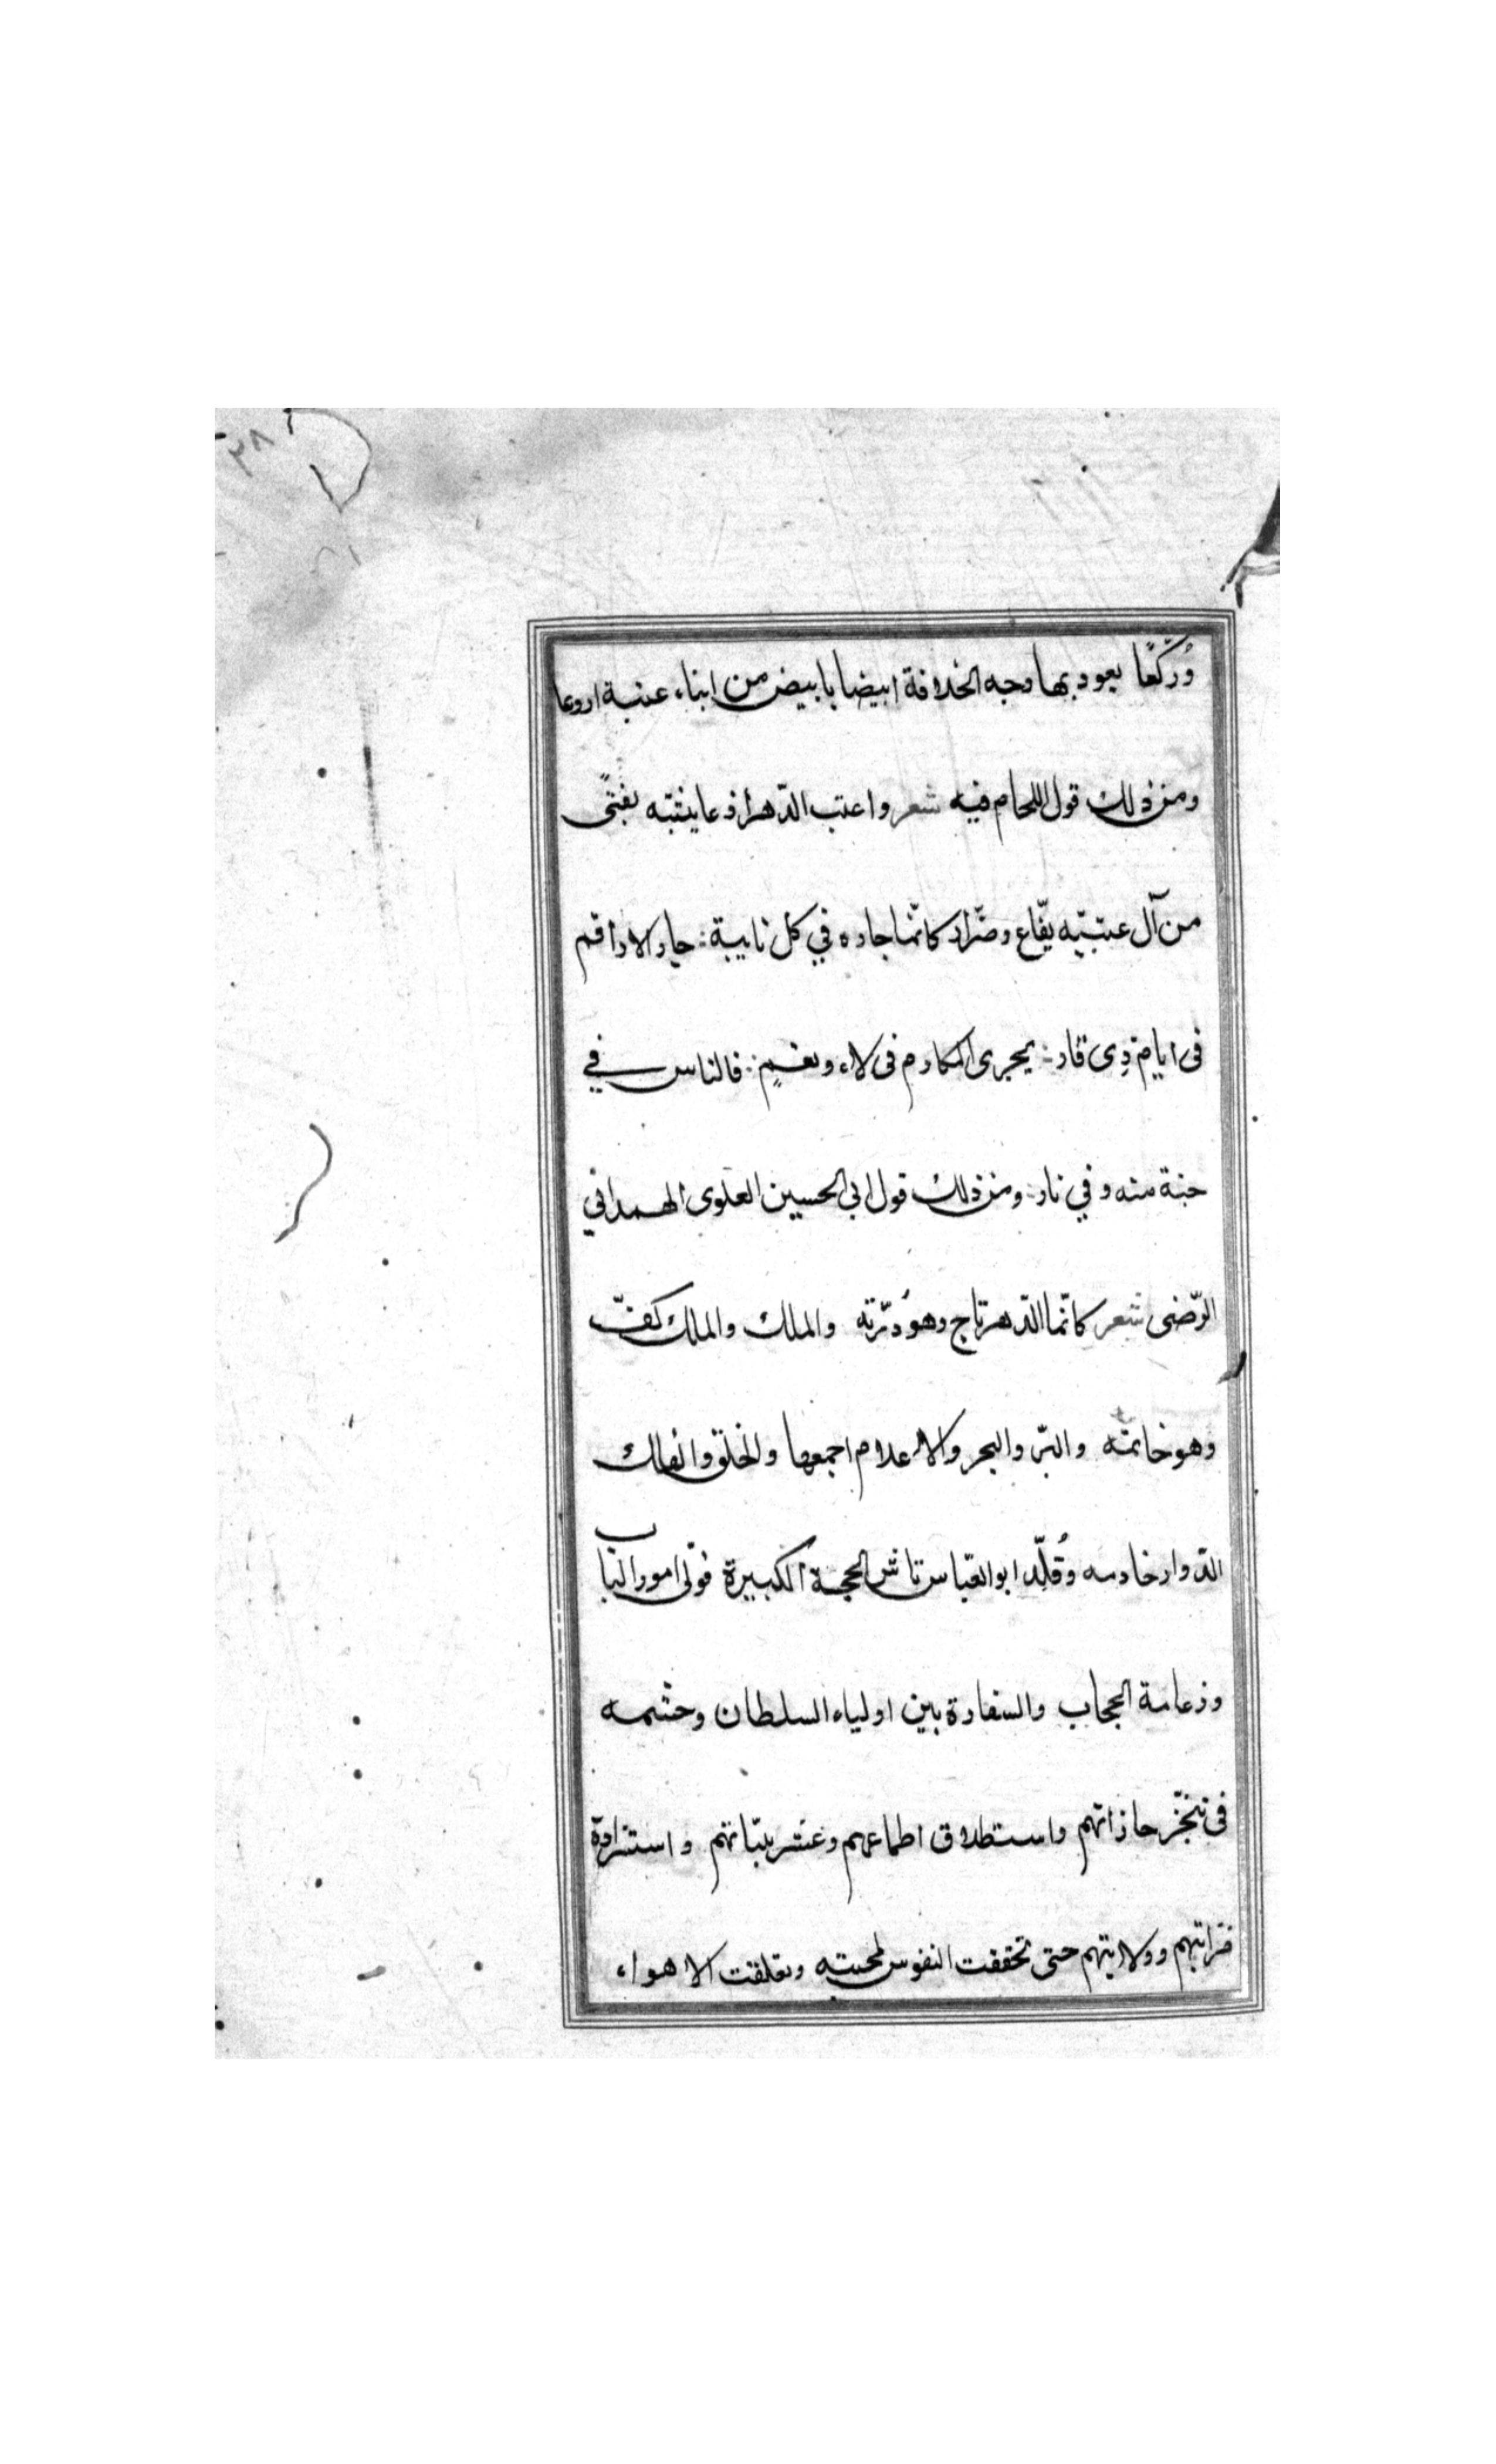 ٣٨
وُركّعًا يعود بها وجه الخلافة ابيضا بابيض من ابناء عتبة اروعا
ومن ذلك قول اللحام فيه شعر واعتب الدّهر اذ عاينته بفتًى
من آل عتبته نفّاع وضرّار كانّما جاره في كل نايبة : جار الاراقم
فى ايام ذِى قار : يجرى المكارم فى لاء ونعمٍ : فالناس في
جنة منه وفي نار : ومن ذلك قول ابي الحسين العلوى الهمداني
الرّضى شعر كانّما الدّهر تاج وهو دُرّته والملك والملك كفّ
وهو خاتمه والبرّ والبحر والاعلام اجمعها والخلق والفلك
الدّوار خادمه وقُلِّد ابو العباس تاش الحجبة الكبيرة فولّى امور الباب
وزعامة الحجاب والسفارة بين اولياء السلطان وحشمه
فى تنجّز حاذاتهم واستطلاق اطماعهم وعشريناتهم واستزادة
مراتبهم وولايتهم حتى تحققت النفوس لمحبته وتعلقت الاهواء